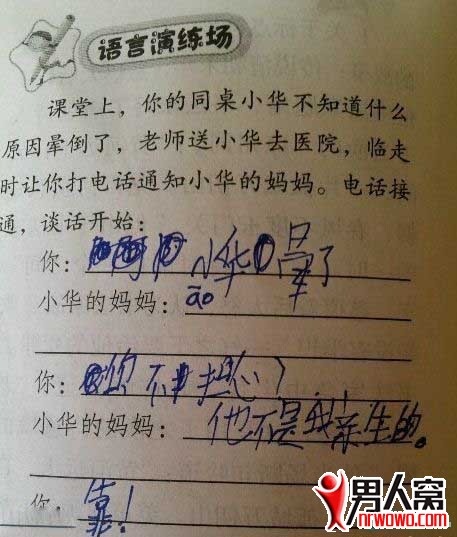 语言演练场
课堂上，你的同桌小华不知道什么
原因晕倒了，老师送小华去医院，临走
时让你打电话通知小华的妈妈。电话接
通，谈话开始：
你： 小华晕了
小华的妈妈：āo
你：你不担心？
小华的妈妈：他不是我亲生的。
你：靠！
男人窝
nrwowo.com